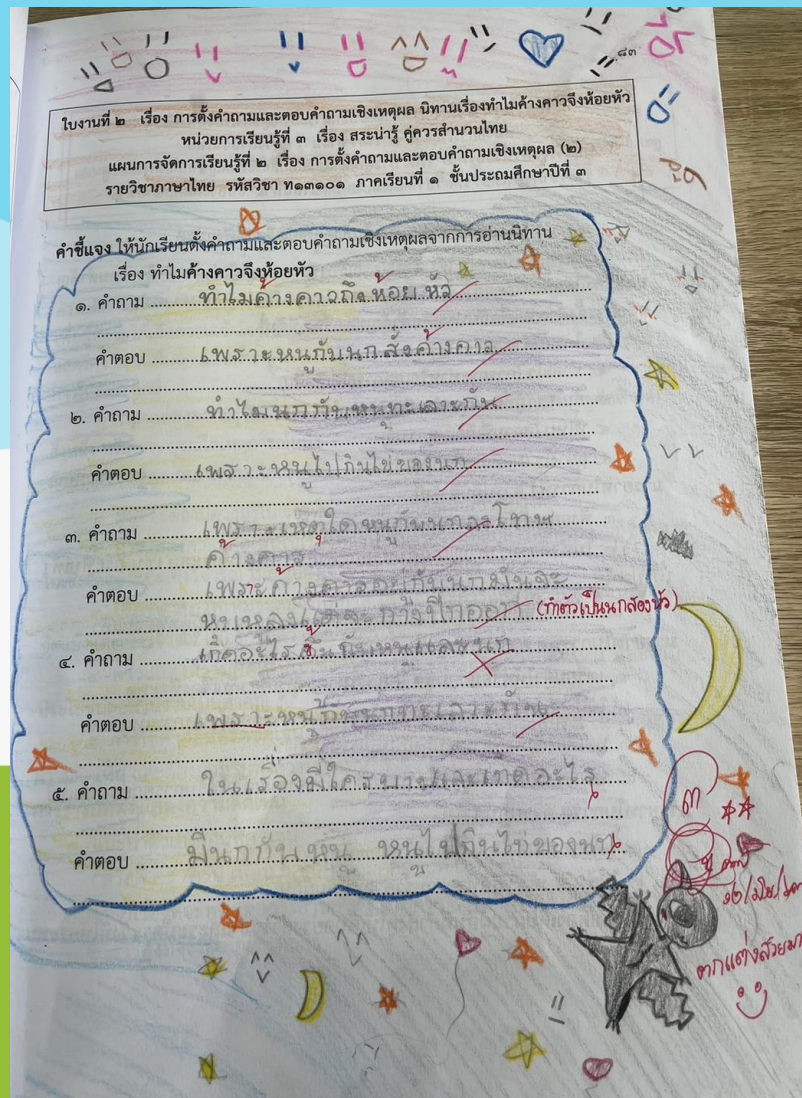 ๘๓
ใบงานที่ ๒ เรื่อง การตั้งคำถามและตอบคำถามเชิงเหตุผล นิทานเรื่องทำไมค้างคาวจึงห้อยหัว
หน่วยการเรียนรู้ที่ ๓ เรื่อง สระน่ารู้ คู่ควรสำนวนไทย
แผนการจัดการเรียนรู้ที่ ๒ เรื่อง การตั้งคำถามและตอบคำถามเชิงเหตุผล (๒)
รายวิชาภาษาไทย รหัสวิชา ท๑๓๑๐๑ ภาคเรียนที่ ๑ ชั้นประถมศึกษาปีที่ ๓
คำชี้แจง ให้นักเรียนตั้งคำถามและตอบคำถามเชิงเหตุผลจากการอ่านนิทาน
เรื่อง ทำไมค้างคาวจึงห้อยหัว
๑. คำถาม ทำไมค้างคาวถึงห้อยหัว
คำตอบ เพราะหนูกับนกสั่งค้างคาว
๒. คำถาม ทำไมนกกับหนูทะเลาะกัน
คำตอบ เพราะหนูไปกินไข่ของนก
๓. คำถาม เพราะเหตุใดหนูกับนกลงโทษ
ค้างคาว
คำตอบ เพราะค้างคาวอยู่กับนก
(ทำตัวเป็นนกสองหัว)
๔. คำถาม เกิดอะไรขึ้นกับหนูและนก
คำตอบ เพราะหนูกับนกทะเลาะกัน
๕. คำถาม ในเรื่องมีใครบางและเกิดอะไร
คำตอบ มีนกกับหนู หนูไปกินไข่ของนก
๓
ตกแต่งสวยมา